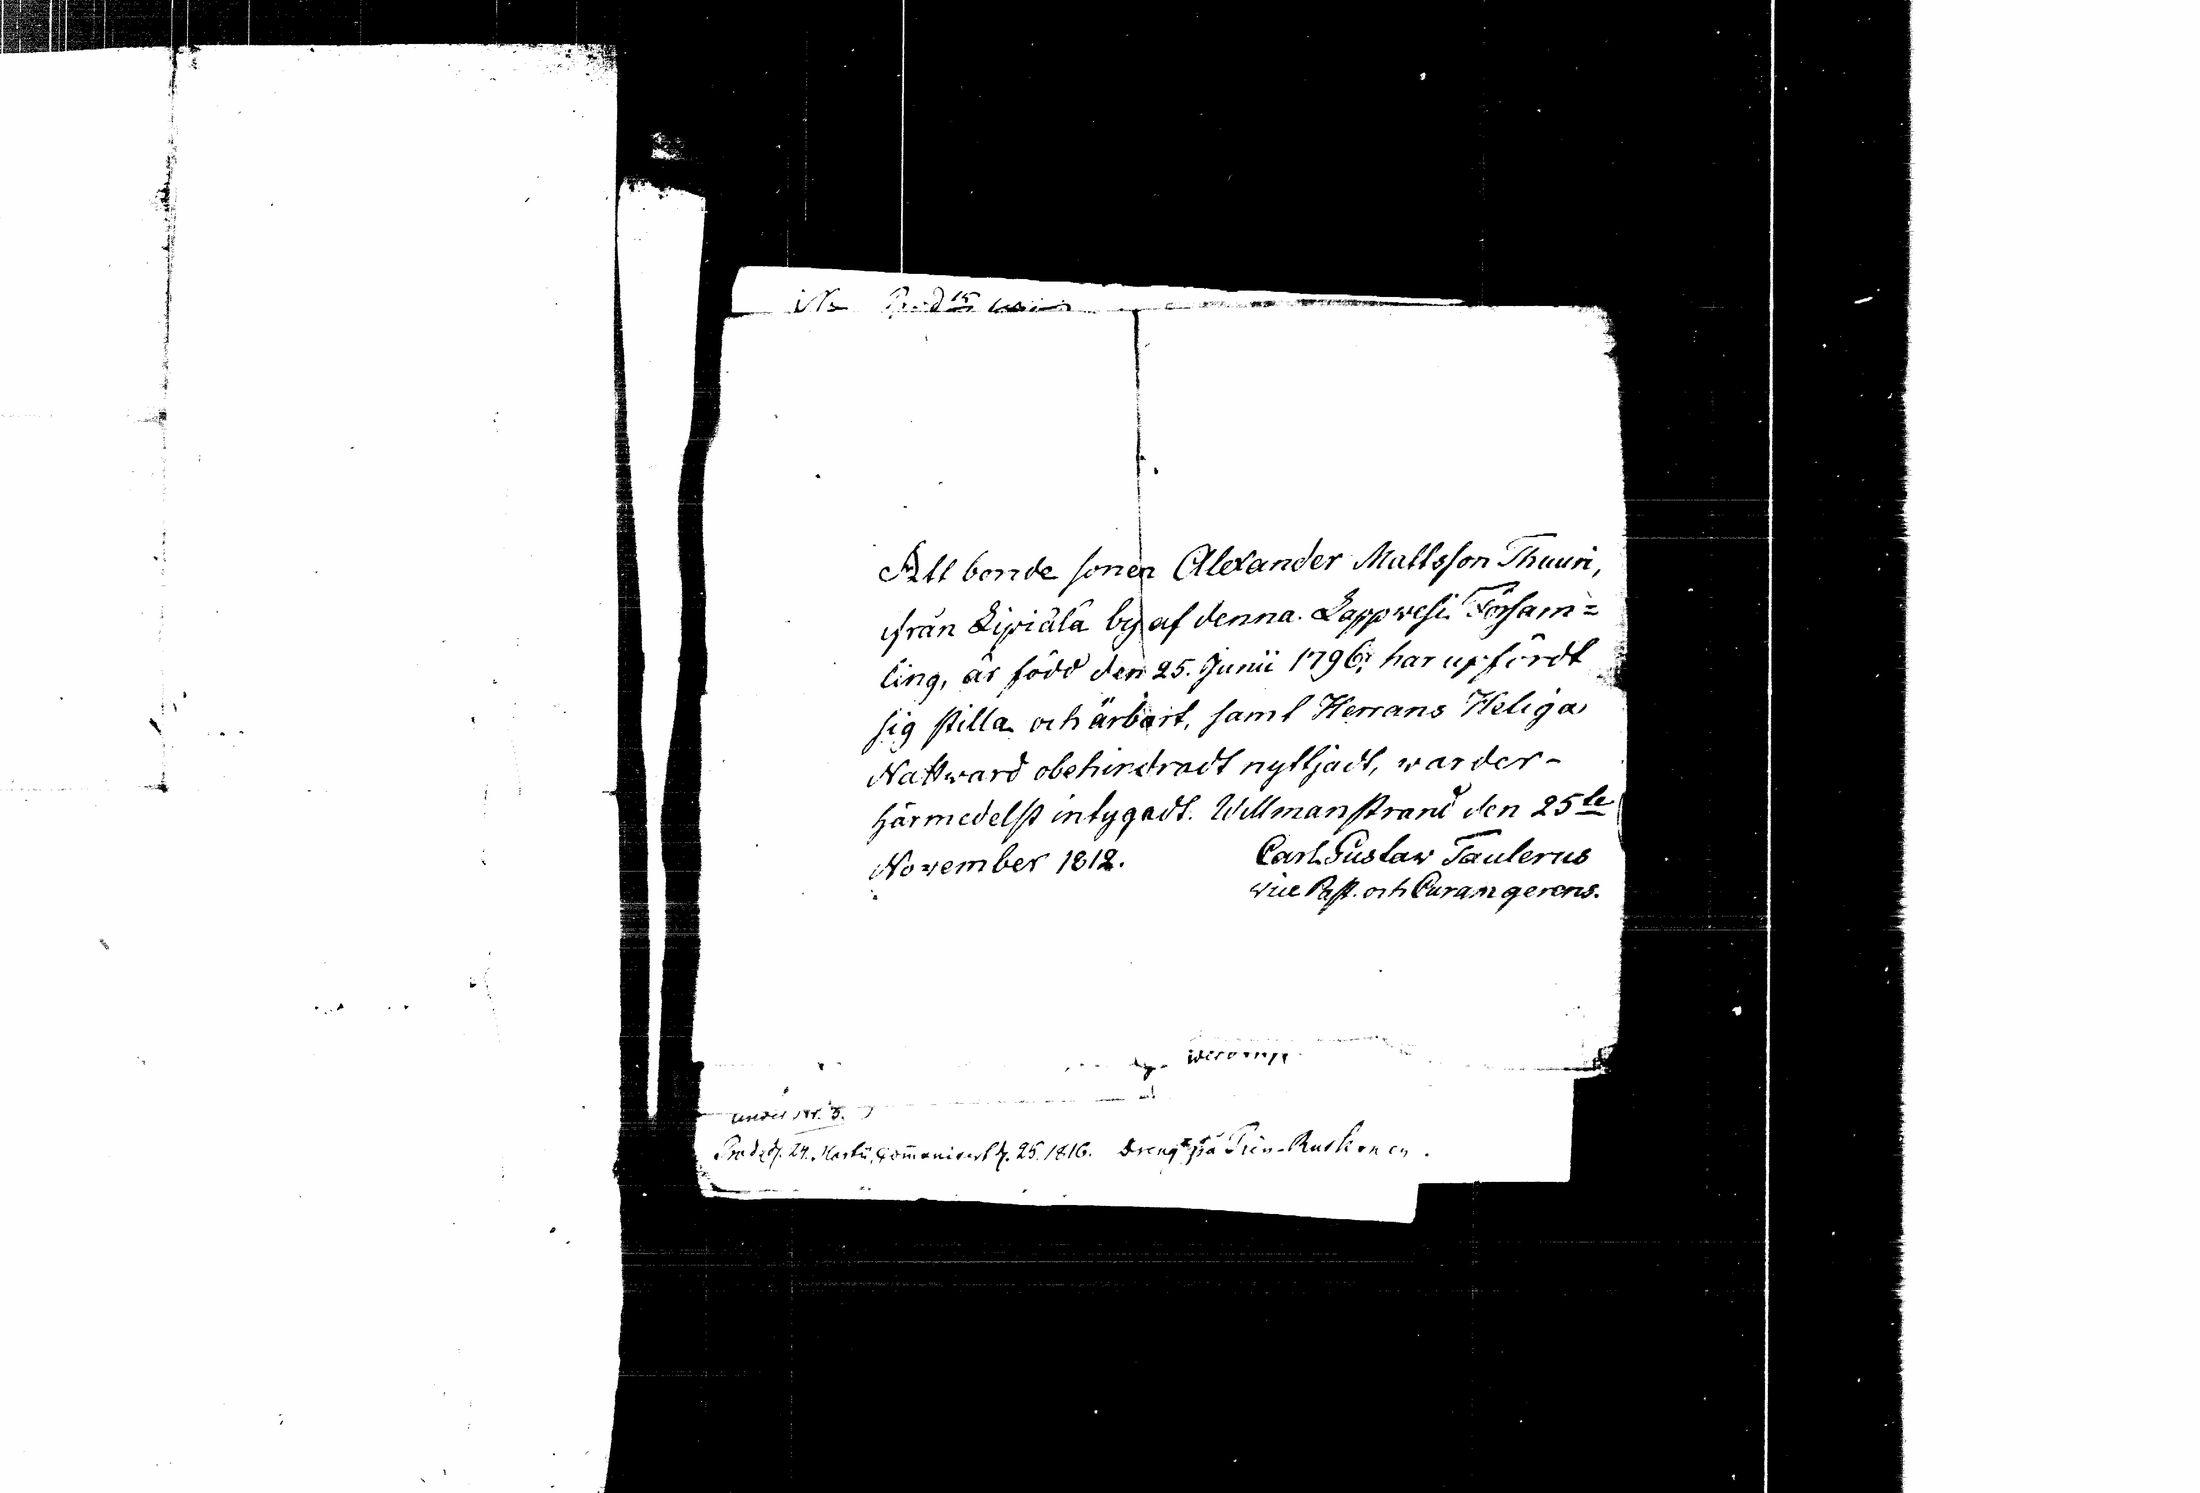 Att bonde sonen Alexander Mattsson Thuuri,
ifrån Lipiälä by af denna Lappvesi Försam=
ling, är född den 25. Junii 1796, har upfördt
sig stilla och ärbart, samt Herrans Heliga
Nattward obehindradt nyttjadt, warder
härmedelst intygadt. Willmanstrand den 25te
November 1812. Carl Gustaw Taulerus
wice Past. och Curam gerens.
Prod. d. 24. Martii, Communicert d. 25. 1816. Dreng på